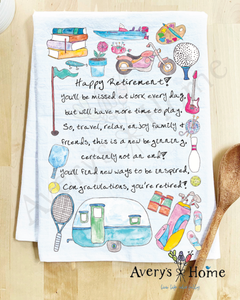 Happy Retirement!
You'll be missed at work every day,
but will have more time to play.
So, travel, relax, enjoy family &
Friends, this is a new beginning,
certainly not an end!
You'll find new ways to be inspired,
Congratulations, you're retired!
Avery's Home